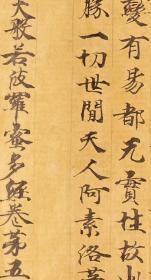 變有易都无實性故山
勝一切世間天人阿素洛
大般若波羅蜜多經卷第五